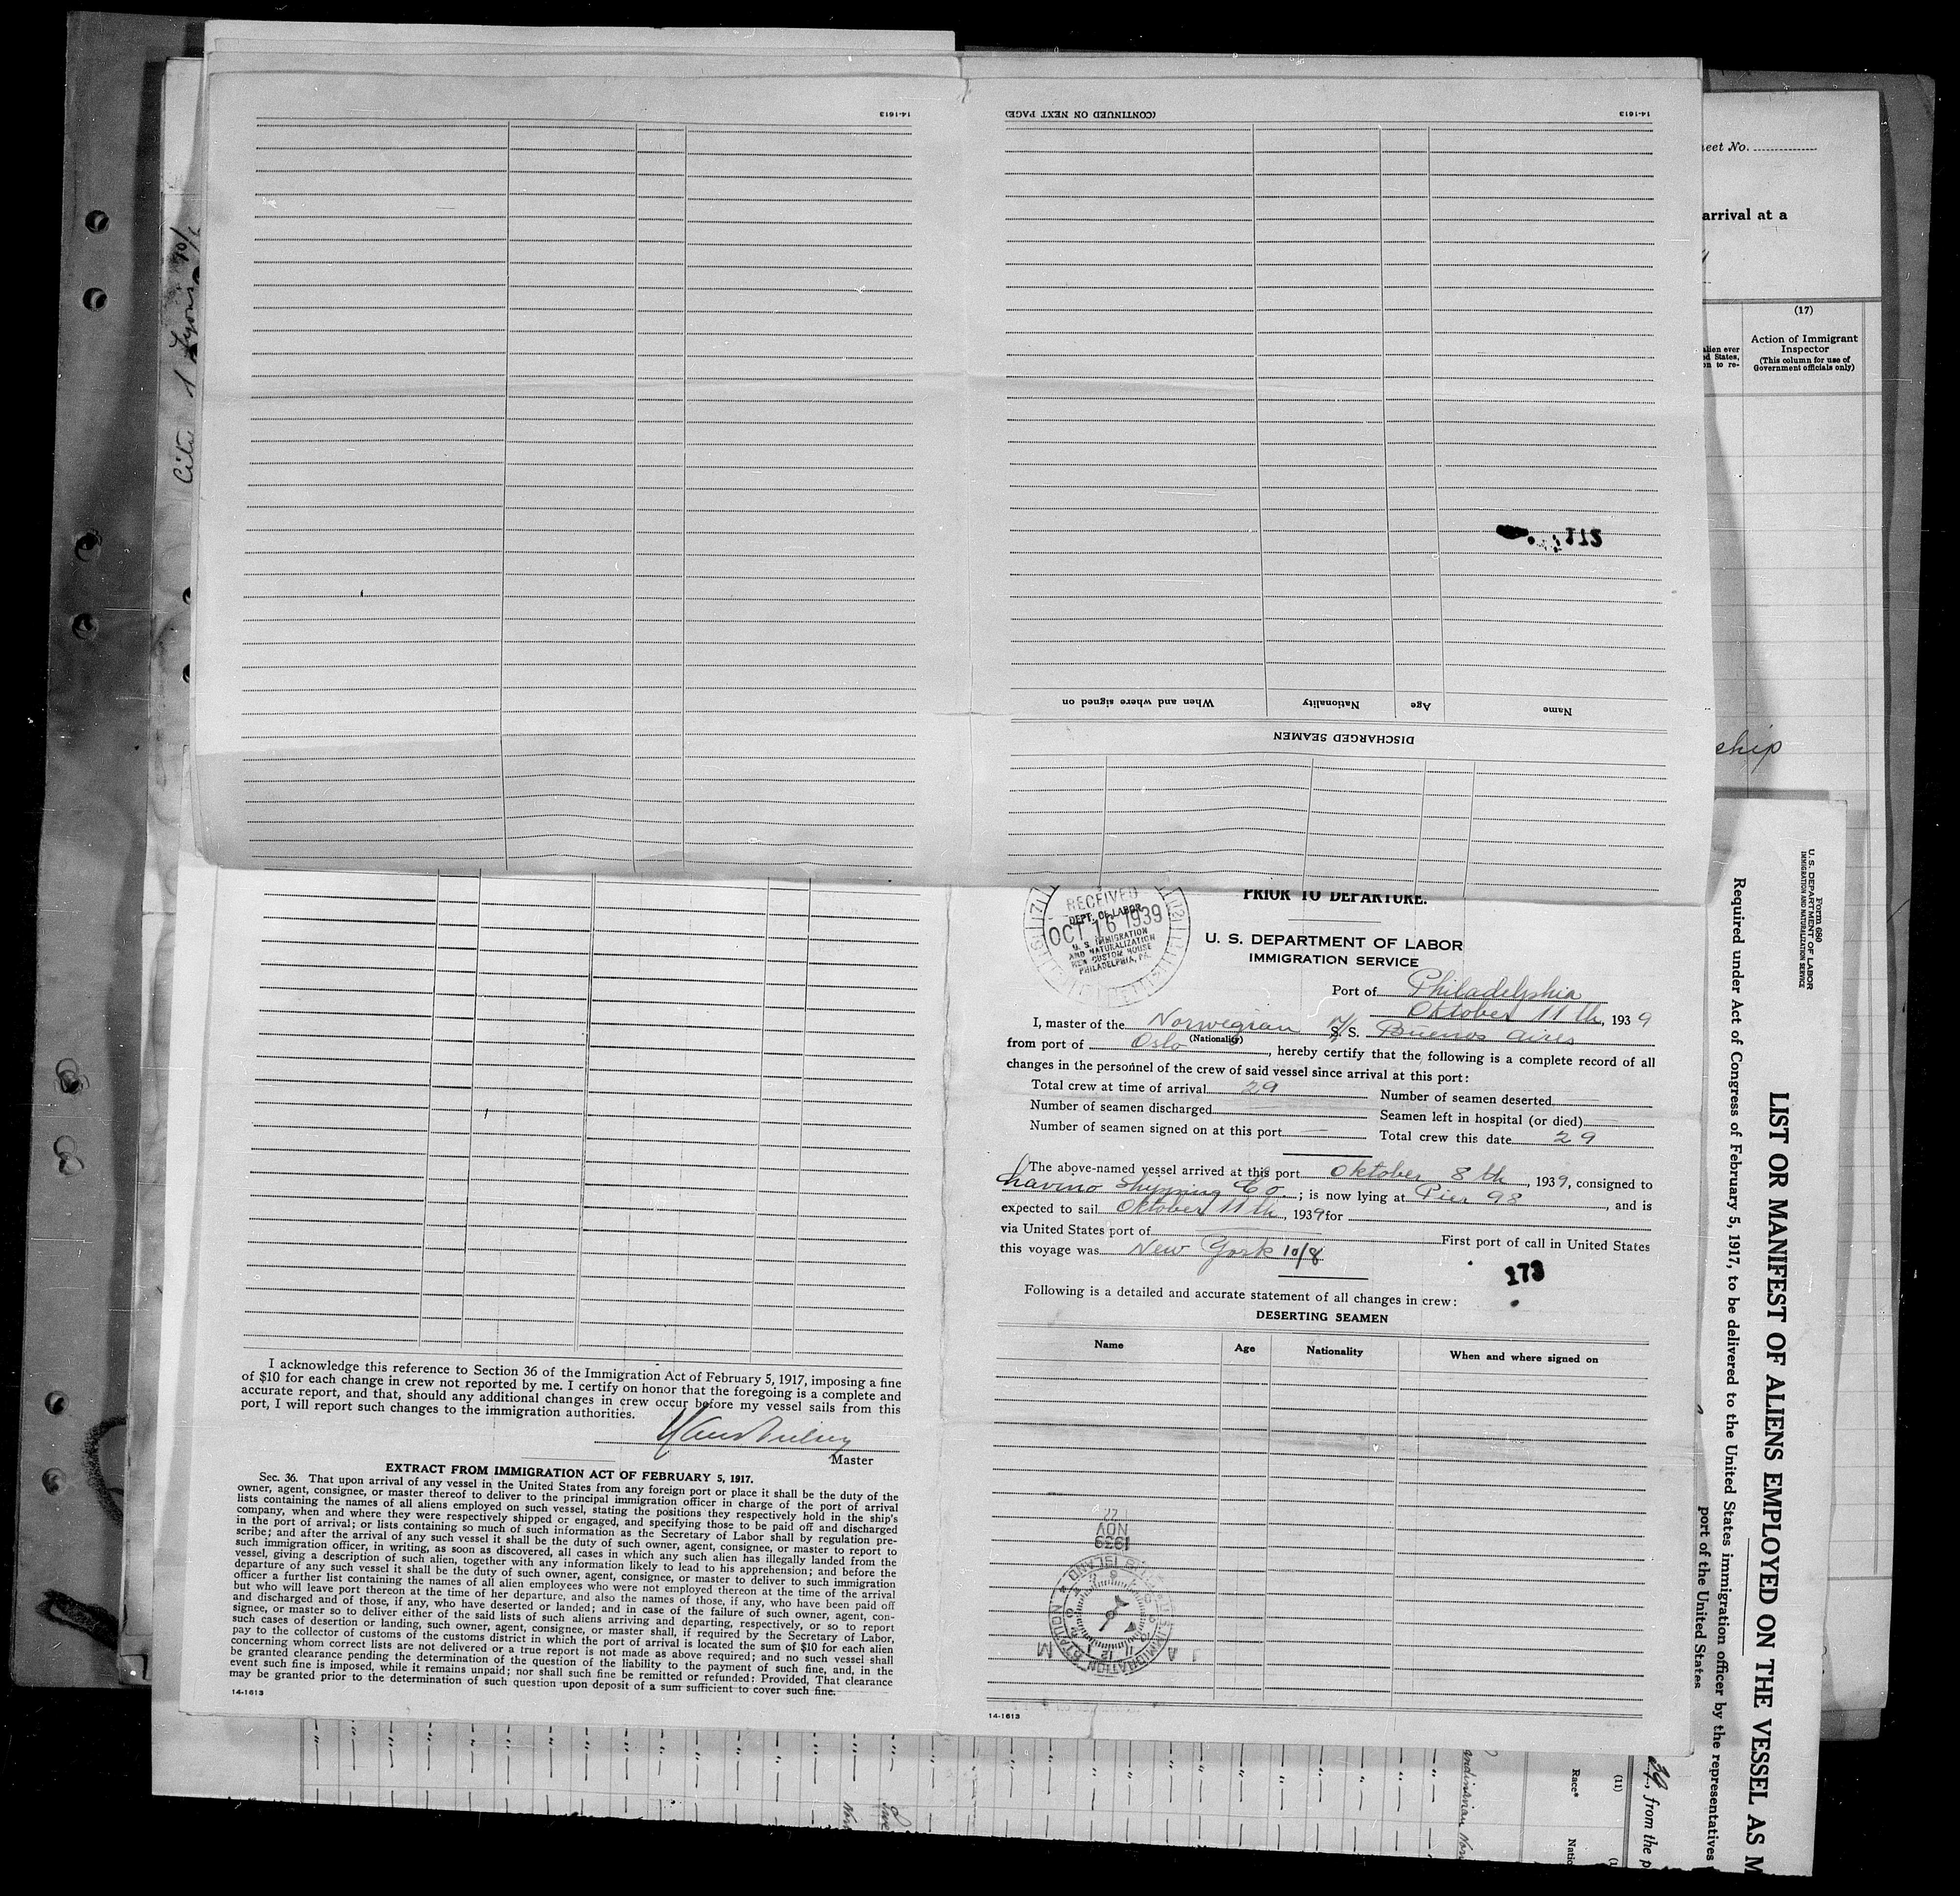 14-1613
(CONTINUED ON NEXT PAGE)
14-1613
172
Name
Age
Nationality
When and where signed on
DISCHARGED SEAMEN
Sheet No.
arrival at a
(17)
Action of Immigrant
Inspector
(This column for use of
Government officials only)
alien ever
ed States,
on to re-
ship
PRIOR TO DEPARTURE.
RECEIVED
DEPT. OF LABOR
OCT 16 1939
U. S. IMMIGRATION
AND NATURALIZATION
NEW CUSTOM HOUSE
PHILADELPHIA, PA.
U. S. DEPARTMENT OF LABOR
IMMIGRATION SERVICE
Port of Philadelphia
Oktober 11th, 1939
I, master of the Norwegian M/S. S. Buenos Aires
(Nationality)
from port of Oslo, hereby certify that the following is a complete record of all
changes in the personnel of the crew of said vessel since arrival at this port:
Total crew at time of arrival 29
Number of seamen deserted
Number of seamen discharged
Seamen left in hospital (or died)
Number of seamen signed on at this port
Total crew this date 29
The above-named vessel arrived at this port Oktober 8th, 1939, consigned to
Shipping Co.; is now lying at Pier 98, and is
expected to sail Oktober 11th, 1939 for
via United States port of
First port of call in United States
this voyage was New York 10/8
173
Following is a detailed and accurate statement of all changes in crew:
DESERTING SEAMEN
Name
Age
Nationality
When and where signed on
1939
NOV
22
U.S. IMMIGRATION STATION
ELLIS ISLAND
A M
14-1613
I acknowledge this reference to Section 36 of the Immigration Act of February 5, 1917, imposing a fine
of $10 for each change in crew not reported by me. I certify on honor that the foregoing is a complete and
accurate report, and that, should any additional changes in crew occur before my vessel sails from this
port, I will report such changes to the immigration authorities.
Master
EXTRACT FROM IMMIGRATION ACT OF FEBRUARY 5, 1917.
Sec. 36. That upon arrival of any vessel in the United States from any foreign port or place it shall be the duty of the
owner, agent, consignee, or master thereof to deliver to the principal immigration officer in charge of the port of arrival
lists containing the names of all aliens employed on such vessel, stating the positions they respectively hold in the ship's
company, when and where they were respectively shipped or engaged, and specifying those to be paid off and discharged
in the port of arrival; or lists containing so much of such information as the Secretary of Labor shall by regulation pre-
scribe; and after the arrival of any such vessel it shall be the duty of such owner, agent, consignee, or master to report to
such immigration officer, in writing, as soon as discovered, all cases in which any such alien has illegally landed from the
vessel, giving a description of such alien, together with any information likely to lead to his apprehension; and before the
departure of any such vessel it shall be the duty of such owner, agent, consignee, or master to deliver to such immigration
officer a further list containing the names of all alien employees who were not employed thereon at the time of the arrival
but who will leave port thereon at the time of her departure, and also the names of those, if any, who have been paid off
and discharged and of those, if any, who have deserted or landed; and in case of the failure of such owner, agent, con-
signee, or master so to deliver either of the said lists of such aliens arriving and departing, respectively, or so to report
such cases of desertion or landing, such owner, agent, consignee, or master shall, if required by the Secretary of Labor,
pay to the collector of customs of the customs district in which the port of arrival is located the sum of $10 for each alien
concerning whom correct lists are not delivered or a true report is not made as above required; and no such vessel shall
be granted clearance pending the determination of the question of the liability to the payment of such fine, and, in the
event such fine is imposed, while it remains unpaid; nor shall such fine be remitted or refunded: Provided, That clearance
may be granted prior to the determination of such question upon deposit of a sum sufficient to cover such fine.
14-1613
Form 680
U. S. DEPARTMENT OF LABOR
IMMIGRATION AND NATURALIZATION SERVICE
LIST OR MANIFEST OF ALIENS EMPLOYED ON THE VESSEL AS M
Required under Act of Congress of February 5, 1917, to be delivered to the United States immigration officer by the representatives
port of the United States
39, from the p
(11)
Race*
Natio